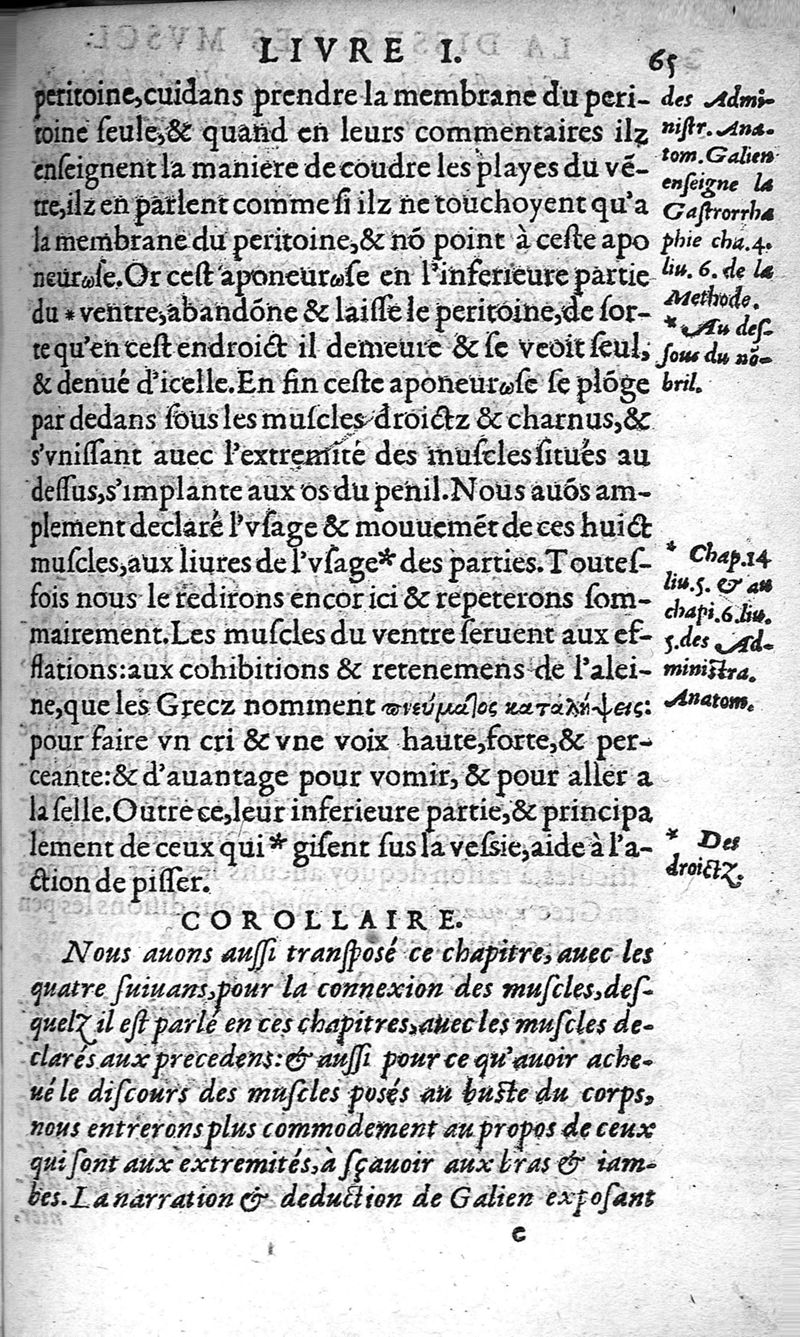 LIVRE I. 65
peritoine,cuidans prendre la membrane du peri-
toine ſeule,& quand en leurs commentaires ilz
enſeignent la maniere de coudre les playes du vē-
tre,ilz en parlent comme ſi ilz ne touchoyent qu'a
la membrane du peritoine,& nō point à ceſte apo
neurωſe.Or ceſt aponeurωſe en l'inferieure partie
du * ventre,abandōne & laiſſe le peritoine,de ſor-
te qu'en ceſt endroict il demeure & ſe veoit ſeul,
& denué d'icelle.En fin ceſte aponeurωſe ſe plōge
par dedans ſous les muſcles droictz & charnus,&
s'vniſſant auec l'extremité des muſcles ſitués au
deſſus,s'implante aux os du penil.Nous auōs am-
plement declaré l'vſage & mouuemēt de ces huict
muſcles,aux liures de l'vſage* des parties.Touteſ-
fois nous le redirons encor ici & repeterons ſom-
mairement.Les muſcles du ventre ſeruent aux ef-
flations:aux cohibitions & retenemens de l'alei-
ne,que les Grecz nomment πνεύματος καταλήψεις:
pour faire vn cri & vne voix haute,forte,& per-
ceante:& d'auantage pour vomir, & pour aller a
la ſelle.Outre ce,leur inferieure partie,& principa
lement de ceux qui * giſent ſus la veſsie,aide à l'a-
ction de piſſer.
des Admi-
niſtr. Ana-
tom. Galien
enſeigne la
Gaſtrorrha
phie cha. 4.
liu. 6. de la
Methode.
* Au deſ-
ſous du nō-
bril.
* Chap. 14
liu. 5. & au
chapi. 6. liu.
5. des Ad-
miniſtra.
Anatom.
* Des
droictz.
COROLLAIRE.
Nous auons auſſi tranſposé ce chapitre, auec les
quatre ſuiuans,pour la connexion des muſcles,deſ-
quelz il eſt parlé en ces chapitres,auec les muſcles de-
clarés aux precedens:& auſſi pour ce qu'auoir ache-
ué le diſcours des muſcles posés au buſte du corps,
nous entrerons plus commodement au propos de ceux
qui ſont aux extremités,à ſçauoir aux bras & iam-
bes. La narration & deduction de Galien expoſant
e